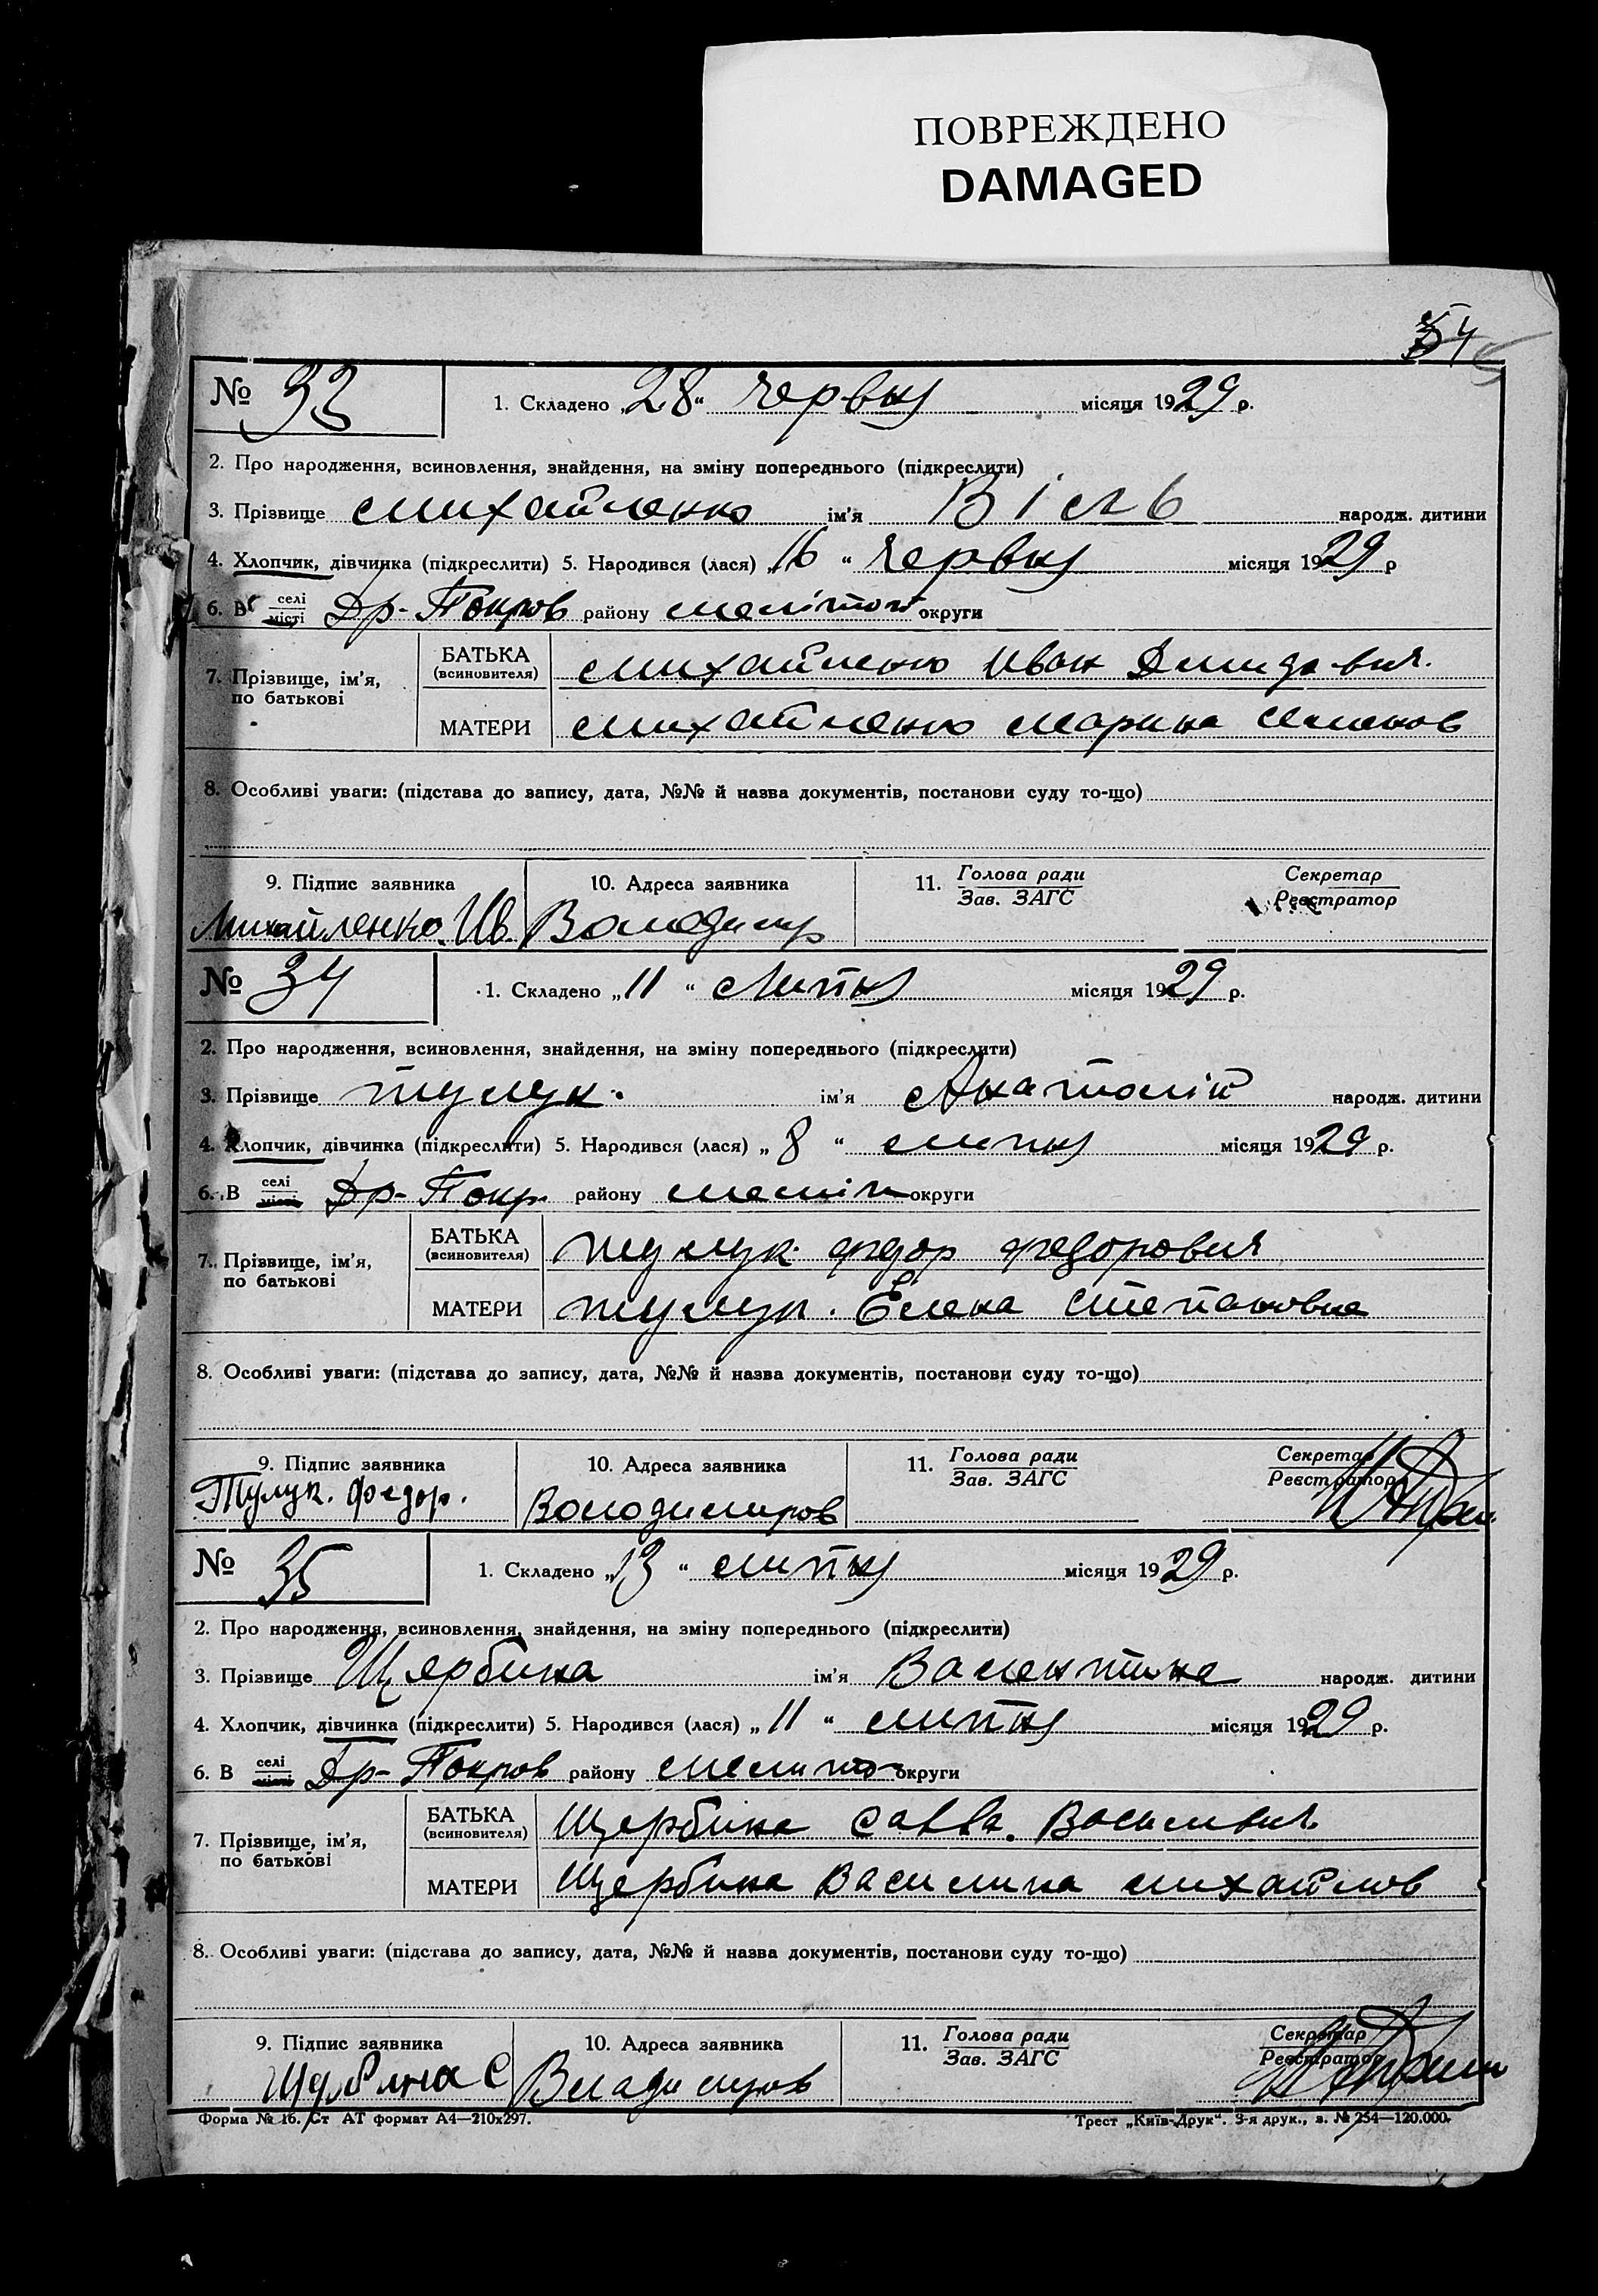 ПОВРЕЖДЕНО
DAMAGED
№ 33
1. Складено „28“ червня місяця 1929 р.
2. Про народження, всиновлення, знайдення, на зміну попереднього (підкреслити)
3. Прізвище Михайленко ім'я Віль народж. дитини
4. Хлопчик, дівчинка (підкреслити) 5. Народився (лася) „16“ червня місяця 1929 р
6. В селі місті Др-Покров району Меліто округи
7. Прізвище, ім'я, по батькові
БАТЬКА (всиновителя) Михайленко Иван Демидович.
МАТЕРИ Михайленко Марина Семенов
8. Особливі уваги: (підстава до запису, дата, №№ й назва документів, постанови суду то-що)
9. Підпис заявника 10. Адреса заявника 11. Голова ради Зав. ЗАГС Секретар Реєстратор
Михайленко. Ив. Володимир
№ 34
1. Складено „11“ Липня місяця 1929 р.
2. Про народження, всиновлення, знайдення, на зміну попереднього (підкреслити)
3. Прізвище Тулук. ім'я Анатолій народж. дитини
4. Хлопчик, дівчинка (підкреслити) 5. Народився (лася) „8“ липня місяця 1929 р.
6. В селі місті Др-Покр. району Меліт округи
7. Прізвище, ім'я, по батькові
БАТЬКА (всиновителя) Тулук. Федор Федорович
МАТЕРИ Тулук. Елена Степановна
8. Особливі уваги: (підстава до запису, дата, №№ й назва документів, постанови суду то-що)
9. Підпис заявника 10. Адреса заявника 11. Голова ради Зав. ЗАГС Секретар Реєстратор
Тулук. Федор. Володимиров
№ 35
1. Складено „13“ липня місяця 1929 р.
2. Про народження, всиновлення, знайдення, на зміну попереднього (підкреслити)
3. Прізвище Щербина ім'я Валентина народж. дитини
4. Хлопчик, дівчинка (підкреслити) 5. Народився (лася) „11“ липня місяця 1929 р.
6. В селі місті Др-Покров району Мелито округи
7. Прізвище, ім'я, по батькові
БАТЬКА (всиновителя) Щербина Савва. Васильвич
МАТЕРИ Щербина Василина Михайлов
8. Особливі уваги: (підстава до запису, дата, №№ й назва документів, постанови суду то-що)
9. Підпис заявника 10. Адреса заявника 11. Голова ради Зав. ЗАГС Секретар Реєстратор
Щербина С Владимиров
Форма № 16. Ст АТ формат А4—210х297. Трест „Київ-Друк“. 3-я друк., з. № 254—120.000.